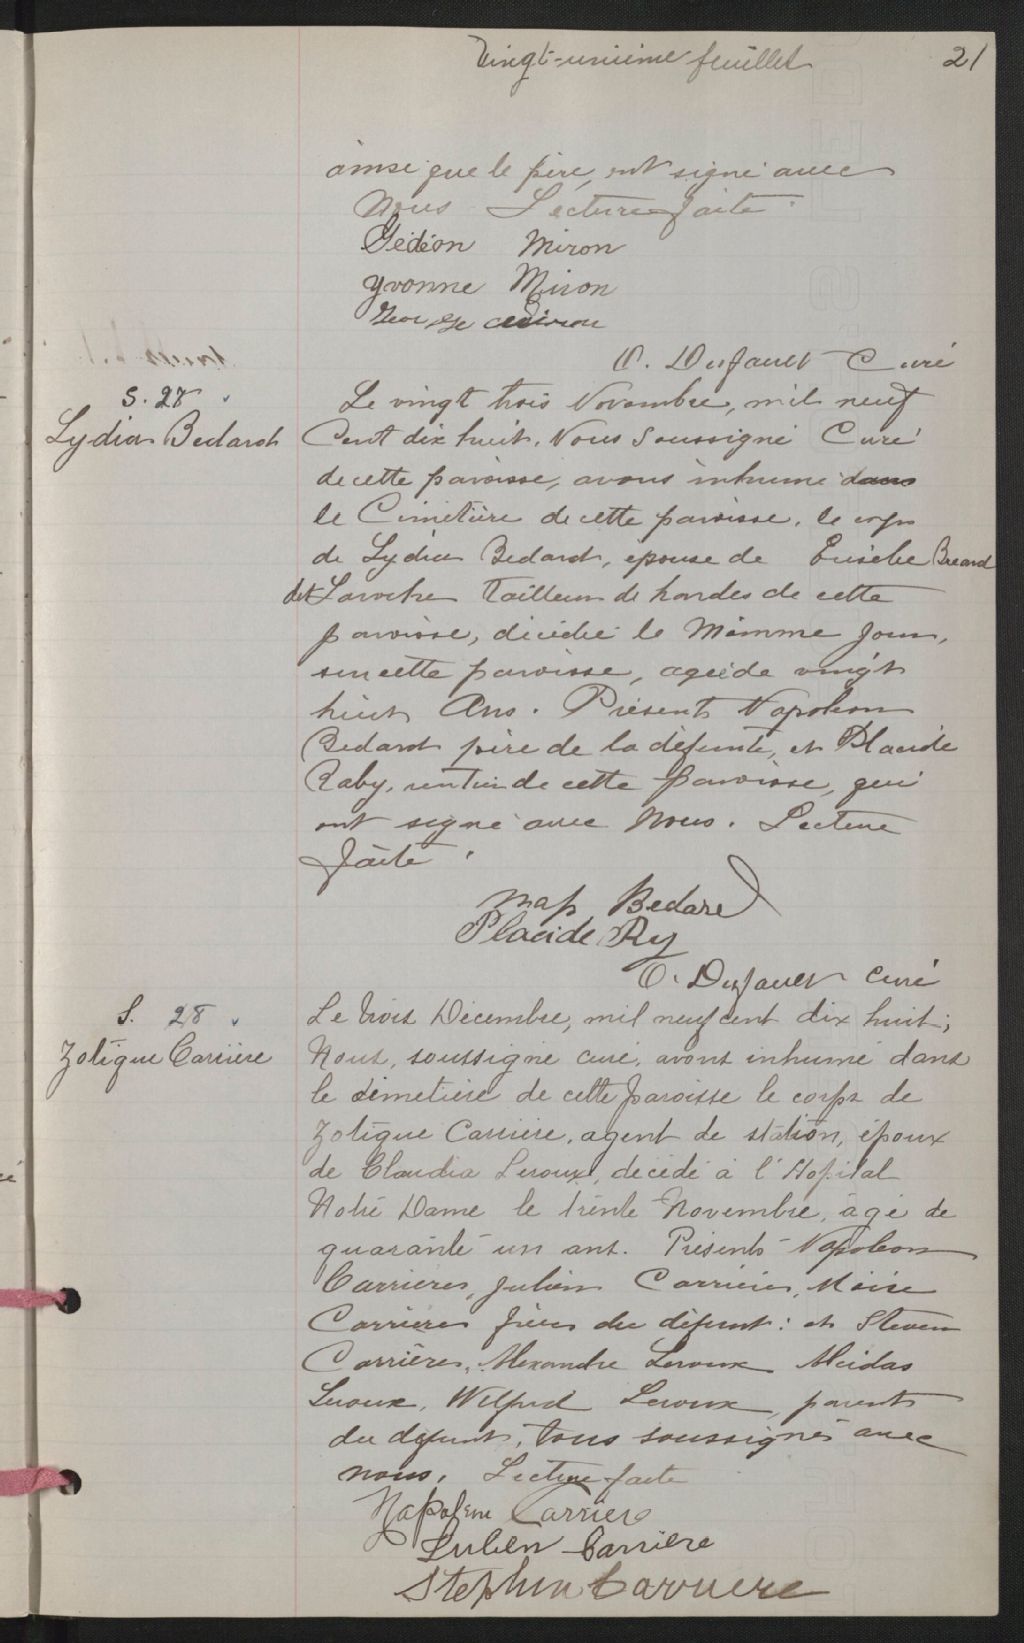 Vingt-unième feuillet 21
ainsi que le père, ont signé avec
Nous Lecture faite.
Gédéon Miron
Yvonne Miron
George Miron
O. Dufault Curé
S. 27
Lydia Bedard
Le vingt trois Novembre, mil neuf
Cent dix huit. Nous Soussigné Curé
de cette paroisse, avons inhumé dans
le Cimetière de cette paroisse, le corps
de Lydia Bedard, épouse de Eusèbe Breard
dit Laroche tailleur de hardes de cette
paroisse, décédée le Mêmme jour,
sur cette paroisse, agée de vingt
huit Ans. Présents Napoleon
Bedard père de la défunte, et Placide
Raby, rentier de cette paroisse, qui
ont signé avec Nous. Lecture
faite.
Nap Bedard
Placide Ry
O. Dufault curé
S. 28
Zotique Carrière
Le trois Décembre, mil neuf cent dix huit;
Nous, soussigné curé, avons inhumé dans
le cimetière de cette paroisse le corps de
Zotique Carrière, agent de station, époux
de Claudia Leroux, décédé à l'Hopital
Notre Dame le trente Novembre, âgé de
quarante-un ans. Présents Napoleon
Carrières, Julien Carrière, Moise
Carrières frères du défunt: et Steven
Carrières, Alexandre Leroux Alcidas
Leroux, Wilfrid Leroux, parents
du défunt, tous soussignés avec
nous. Lecture faite
Napoleon Carriere
Julien Carrière
Stephen Carriere